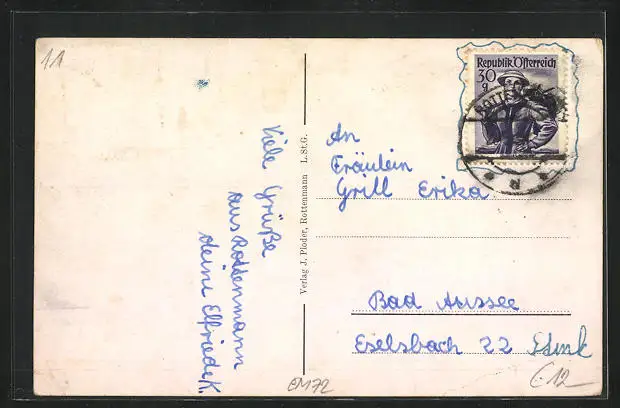 11
Republik Österreich
30
g
ROTT
Viele Grüße
aus Rottenmann
deine Elfriede K.
Verlag J. Ploder, Rottenmann L.St.G.
An
Fräulein
Grill Erika
Bad Aussee
Eselsbach 22
EM72
€12